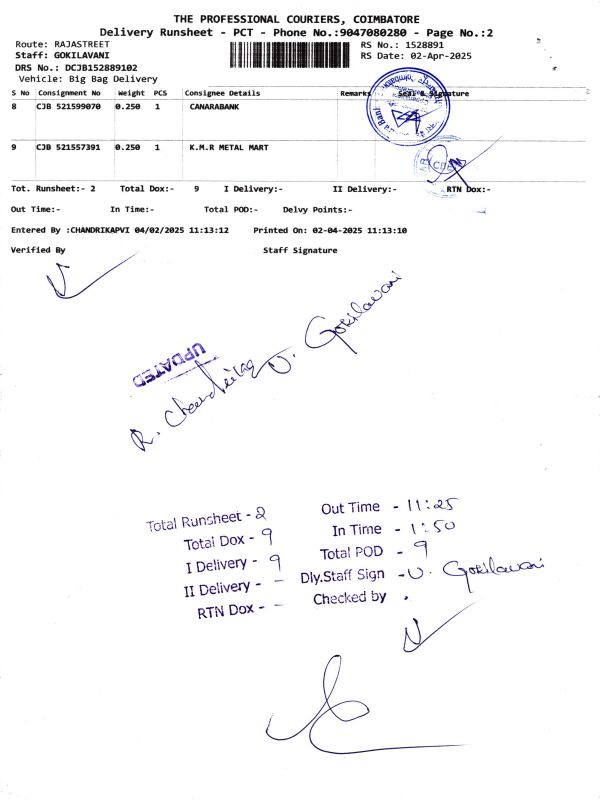 THE PROFESSIONAL COURIERS, COIMBATORE
Delivery Runsheet - PCT - Phone No.:9047080280 - Page No.:2
Route: RAJASTREET RS No.: 1528891
Staff: GOKILAVANI RS Date: 02-Apr-2025
DRS No.: DCJB152889102
Vehicle: Big Bag Delivery
S No Consignment No Weight PCS Consignee Details Remarks Seal & Signature
8 CJB 521599070 0.250 1 CANARABANK
9 CJB 521557391 0.250 1 K.M.R METAL MART
Tot. Runsheet:- 2 Total Dox:- 9 I Delivery:- II Delivery:- RTN Dox:-
Out Time:- In Time:- Total POD:- Delvy Points:-
Entered By :CHANDRIKAPVI 04/02/2025 11:13:12 Printed On: 02-04-2025 11:13:10
Verified By Staff Signature
UPDATED
R. Chandrika U. Gokilavani
Total Runsheet - 2 Out Time - 11:25
Total Dox - 9 In Time - 1:50
I Delivery - 9 Total POD - 9
II Delivery - - Dly.Staff Sign - U. Gokilavani
RTN Dox - - Checked by .